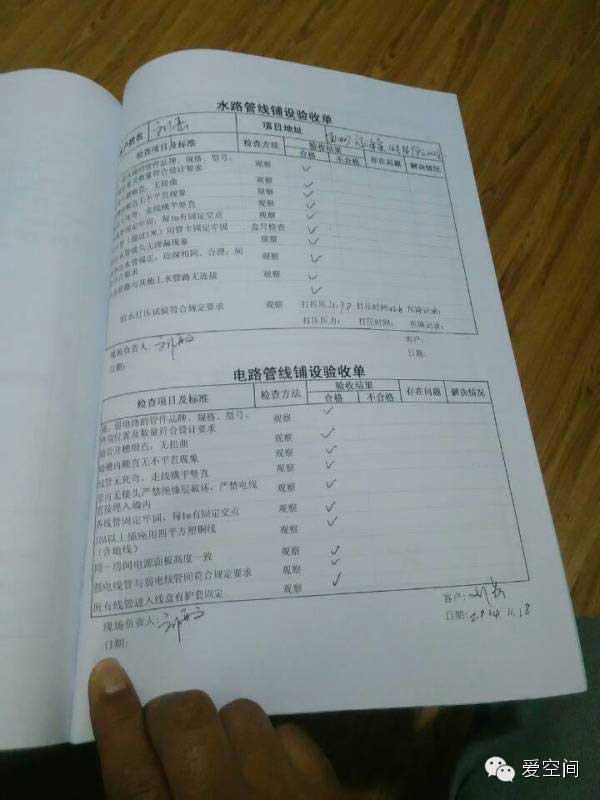 水路管线铺设验收单
户姓名 项目地址
检查项目及标准 检查方法 验收结果 存在问题 解决情况
合格 不合格
管件品牌、规格、型号、 观察
数量符合设计要求
顺直、无扭曲 观察
无不平直现象 观察
走线横平竖直 观察
固定牢固，每1m有固定交点 观察
用管卡固定牢固 盒尺检查
接头无渗漏现象 观察
端正，边深相同、合理，间 观察
要求
管路与其他上水管路无连接 观察
给水打压试验符合规定要求 观察 打压压力: 打压时间: 压降记录:
打压压力: 打压时间: 压降记录:
现场负责人: 客户:
日期: 日期:
电路管线铺设验收单
检查项目及标准 检查方法 验收结果 存在问题 解决情况
合格 不合格
弱电路的管件品牌、规格、型号、 观察
位置及数量符合设计要求
管开槽顺直，无扭曲 观察
槽内顺直无不平直现象 观察
线管无死弯、走线横平竖直 观察
管内无接头严禁绝缘层破坏，严禁电线 观察
直接埋入墙内
各线管固定牢固，每1m有固定交点 观察
以上插座用四平方塑铜线 观察
（含地线）
同一房间电源面板高度一致 观察
强电线管与弱电线管间符合规定要求 观察
所有线管进入线盒有护套固定 观察
现场负责人: 客户:
日期: 日期: 2014.11.18
爱空间